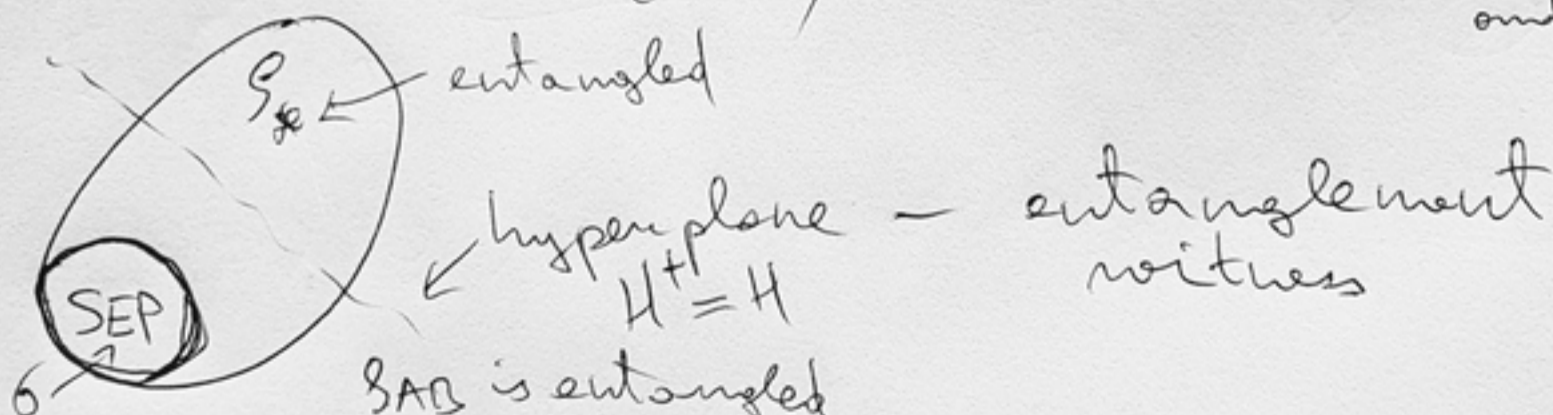 and
ρ entangled
hyperplane — entanglement
H† = H witness
SEP
σ ρAB is entangled